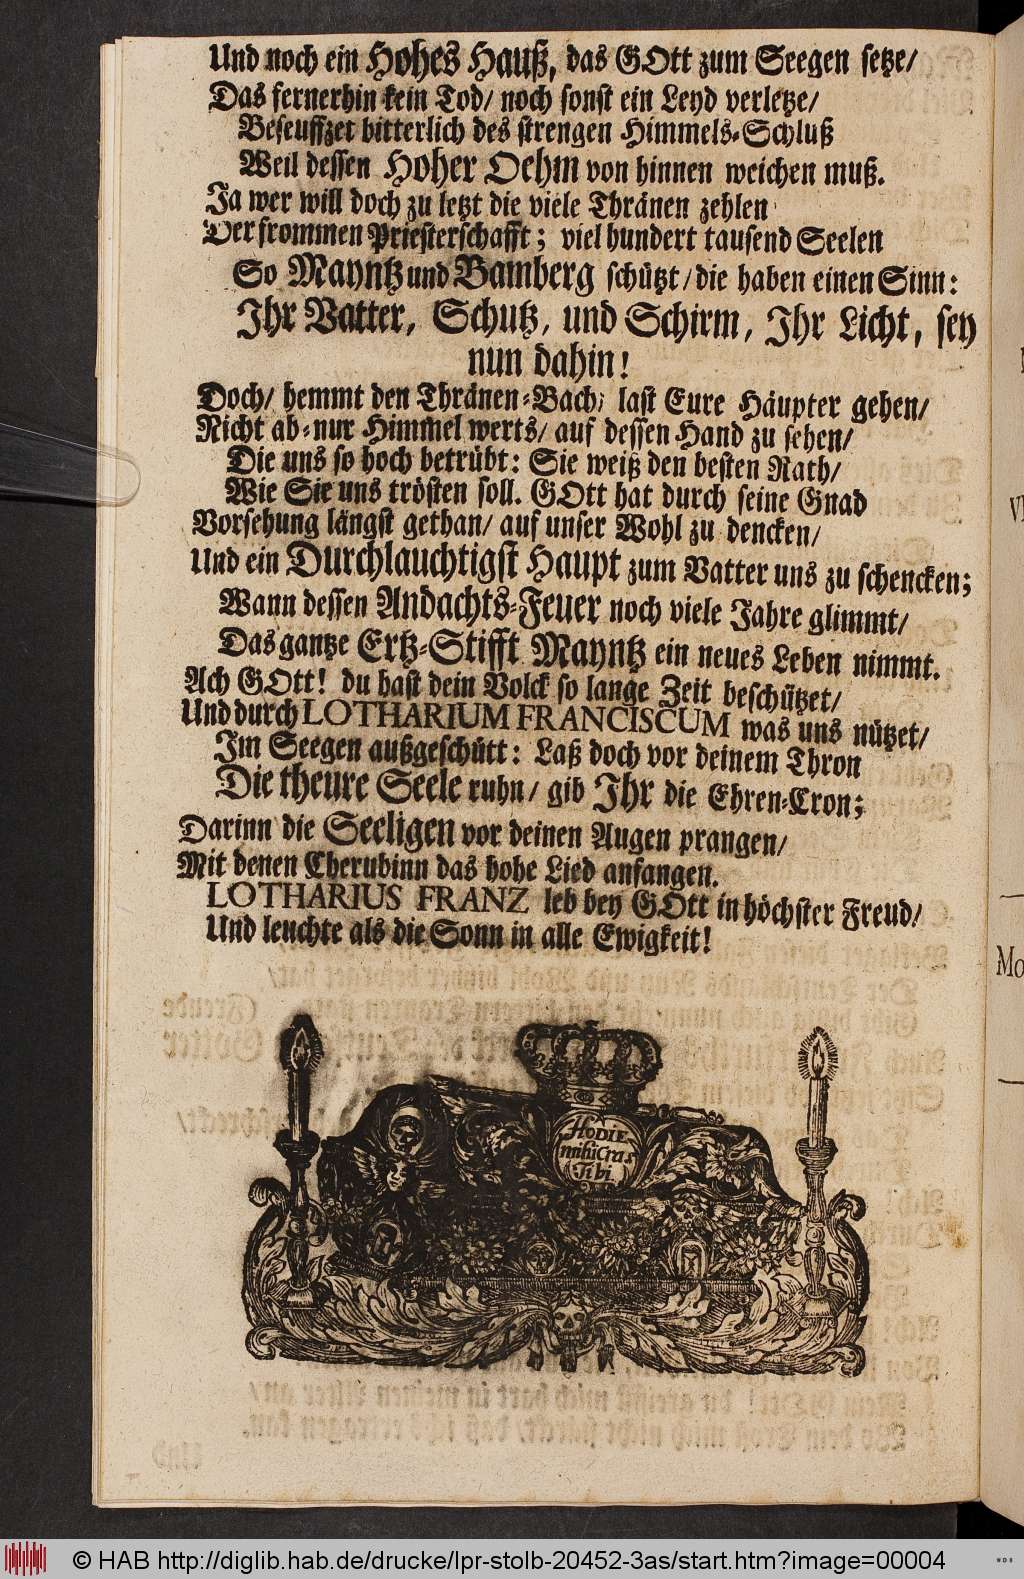 Und noch ein Hohes Hauß, das GOtt zum Seegen setze/
Das fernerhin kein Tod/ noch sonst ein Leyd verletze/
Beseuffzet bitterlich des strengen Himmels-Schluß
Weil dessen Hoher Oehm von hinnen weichen muß.
Ja wer will doch zu letzt die viele Thränen zehlen
Der frommen Priesterschafft; viel hundert tausend Seelen
So Mayntz und Bamberg schützt/ die haben einen Sinn:
Ihr Vatter, Schutz, und Schirm, Ihr Licht, sey
nun dahin!
Doch/ hemmt den Thränen-Bach; last Eure Häupter gehen/
Nicht ab-nur Himmel werts/ auf dessen Hand zu sehen/
Die uns so hoch betrübt: Sie weiß den besten Rath/
Wie Sie uns trösten soll. GOtt hat durch seine Gnad
Vorsehung längst gethan/ auf unser Wohl zu dencken/
Und ein Durchlauchtigst Haupt zum Vatter uns zu schencken;
Wann dessen Andachts-Feuer noch viele Jahre glimmt/
Das gantze Ertz-Stifft Mayntz ein neues Leben nimmt.
Ach GOtt! du hast dein Volck so lange Zeit beschützet/
Und durch LOTHARIUM FRANCISCUM was uns nützet/
Im Seegen außgeschütt: Laß doch vor deinem Thron
Die theure Seele ruhn/ gib Ihr die Ehren-Cron;
Darinn die Seeligen vor deinen Augen prangen/
Mit denen Cherubinn das hohe Lied anfangen.
LOTHARIUS FRANZ leb bey GOtt in höchster Freud/
Und leuchte als die Sonn in alle Ewigkeit!
HODIE
mihi Cras
Tibi
Mo
© HAB http://diglib.hab.de/drucke/lpr-stolb-20452-3as/start.htm?image=00004
WDB